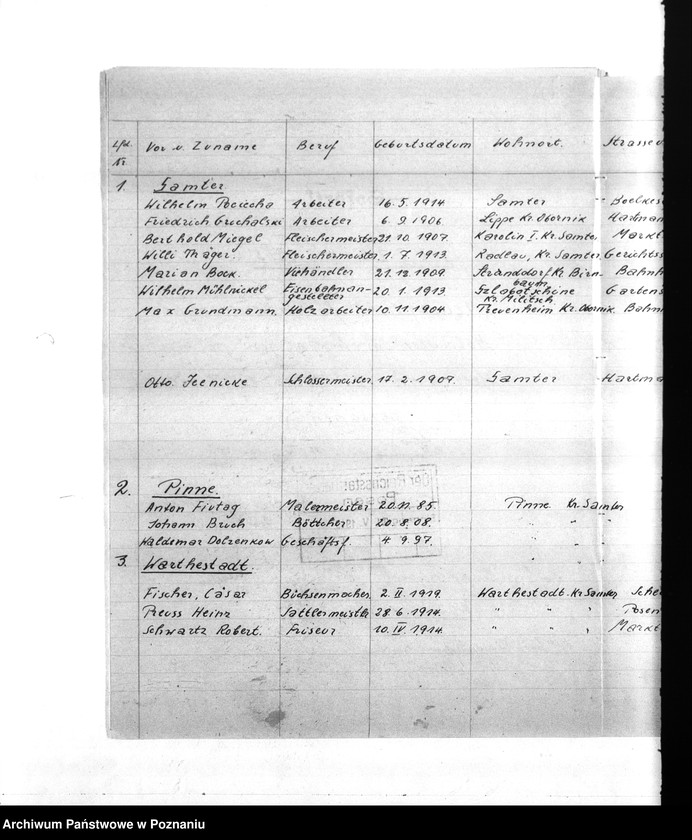 Lfd. Nr. Vor u. Zuname Beruf Geburtsdatum Wohnort. Strasse
1. Samter
Wilhelm Pociecha Arbeiter 16.5.1914. Samter
Friedrich Gruchalski Arbeiter 6.9.1906. Lippe Kr. Obornik
Berthold Miegel Fleischermeister 21.10.1907. Karolin I. Kr. Samter Markt
Willi Thäger. Fleischermeister 1.7.1913. Radlau, Kr. Samter. Gerichtss
Marian Bock. Viehändler 21.12.1909. Stranddorf, Kr. Birn- Bahnh
baum
Wilhelm Mühlnickel Eisenbahnan- 20.1.1913. Gartens
gestellter Kr. Militsch
Max Grundmann. Holzarbeiter 10.11.1904. Trevenheim Kr. Obornik. Bahn
Otto Jeenicke Schlossermeister 17.2.1907. Samter Hartma
2. Pinne.
Anton Malermeister 20.11.85. Pinne Kr. Samter
Johann Bruch Böttcher 20.8.08. " " "
Waldemar Dolzenkow Geschäftsf. 4 9.97. " " "
3. Warthestadt.
Fischer, Cäsar Büchsenmacher. 2.II.1919. Warthestadt. Kr Samter Sche
Preuss Heinz Sattlermeister 28.6.1914. " " " Posen
Schwartz Robert. Friseur 10.IV.1914. " " " Markt
Archiwum Państwowe w Poznaniu